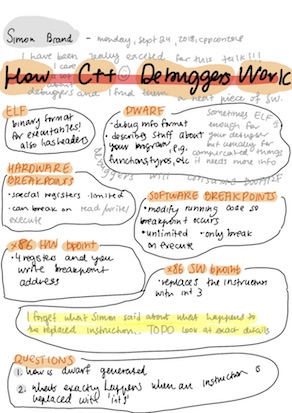 Simon Brand - monday, sept 24, 2018, cppcon
I have been really excited for this talk!!!
I care
debuggers and I find them a neat piece of SW.
How C++ Debuggers Work
ELF
binary format
for executables!
also has headers
DWARF
• debug info format
• describing stuff about
your program, e.g.
functions, types, etc
sometimes ELF
enough for
your debugger
but usually for
complicated things
it needs more info
HARDWARE
BREAKPOINTS
• special registers • limited
• can break on read/write/
execute
SOFTWARE BREAKPOINTS
• modify running code so
breakpoint occurs
• unlimited • only break
on execute
x86 HW bpoint
• 4 registers and you
write breakpoint
address
x86 SW bpoint
• replaces the instruction
with int 3
I forget what Simon said about what happens to
the replaced instruction. TODO look at exact details
QUESTIONS
1. how is dwarf generated
2. what exactly happens when an instruction is
replaced with 'int3'